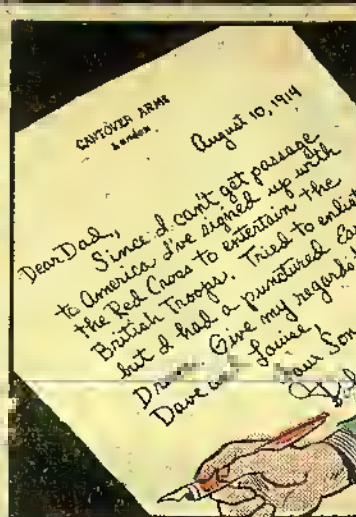 CANTOVER ARMS
London
August 10, 1914
Dear Dad,
Since I can't get passage
to America I've signed up with
the Red Cross to entertain the
British Troops. Tried to enlist
but I had a punctured Ear
Drum. Give my regards
Dave and Louise!
Your Son